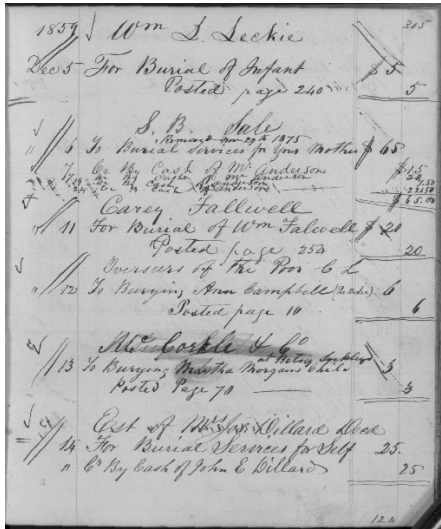 1859 Wm S. Leckie 305
Dec 5 For Burial of Infant $5
Posted page 240 5
S. B. Sale
Removed Nov 29th 1875
6 To Burial Services for Your Mother $65
7 Cr By Cash of Mr Anderson $15
$65.00
Carey Fallwell
11 For Burial of Wm Falwell $20
Posted page 252 20
Overseers of the Poor C L
12 To Burying Ann Campbell 6
Posted page 10 6
McCorkle & Co
13 To Burying Martha Morgans Child at 3
Posted Page 70 3
Est of Dillard Decd
14 For Burial Services for Self 25.
" Cr By Cash of John E Dillard 25